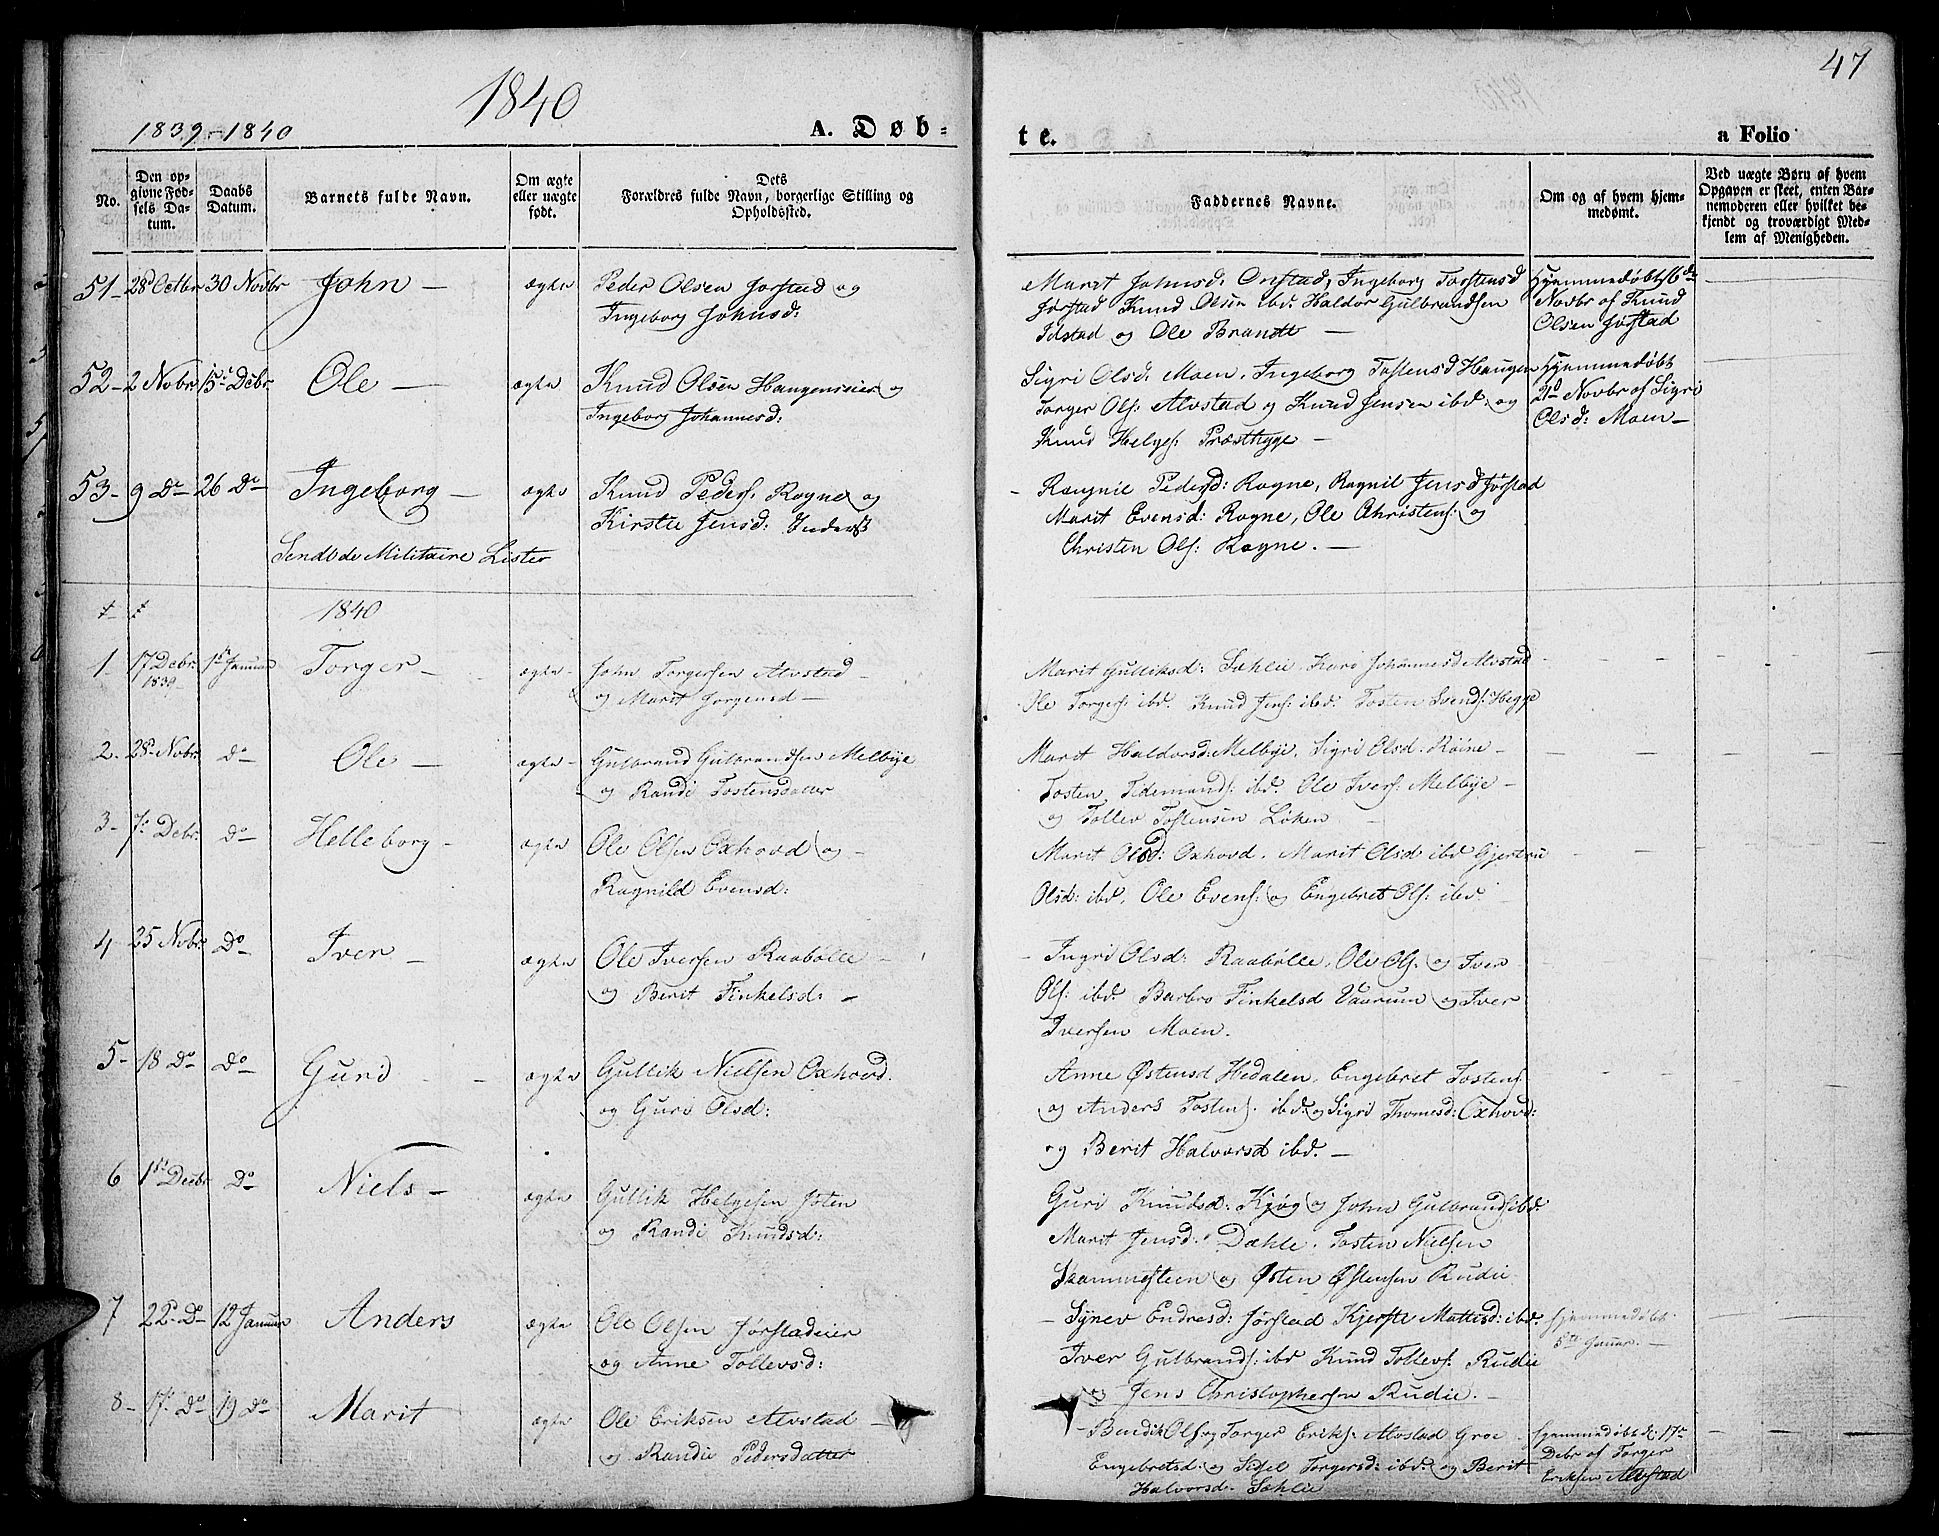 1840
47
1839-1840
A. Døb-
te.
a Folio
No.
Den op-
givne Fød-
sels Da-
tum.
Daabs
Datum.
Barnets fulde Navn.
Om ægte
eller uægte
født.
Dets
Forældres fulde Navn, borgerlige Stilling og
Opholdssted.
Faddernes Navne.
Om og af hvem hjem-
medømt.
Ved uægte Børn af hvem
Opgaven er skeet, enten Bar-
nemoderen eller hvilket be-
kjendt og troværdigt Med-
lem af Menigheden.
51- 28d Octbr 30 Novbr John - ægte Peder Olsen Jorstad og
Ingeborg Johnsd:
Marit Johnsd. Onstad, Ingeborg Tostensd
Jorstad Knud Olsen ibd: Haldor Gulbrandsen
Idstad og Ole Brandt -
Hjemmedøbt 16de
Novbr af Knud
Olsen Jorstad
52- 2 Novbr 15de Debr Ole - ægte Knud Olsen Haugenseier og
Ingeborg Johannesd:
Sigri Olsd: Moen, Ingeborg Tostensd Haugen
Torger Ols: Alvstad og Knud Jensen ibd: og
Knud Helges: Præsthyge -
Hjemmedøbt
21d Novbr af Sigri
Olsd: Moen-
53- 9 Do 26 Do Ingeborg - ægte Knud Peders. Rogne og
Kirstie Jensd: Inderst
- Rangnil Pedersd: Rogne, Ragnil Jensd Jørstad
Marit Evensd: Rogne, Ole Christens: og
Christen Ols: Rogne. -
Sendt de Militaire Lister
1840
1. 17 Debr. 1839 1st Januar Torger - ægte - John Torgersen Alvstad -
og Marit Jorgensd -
Marit Gulliksd: Sæhlie, Kari Johannesd Alvstad
Ole Torgers: ibd. Knud Jens: ibd. Tosten Svends: Hegge
2. 28d Novbr. Do Ole - ægte - Gulbrand Gulbrandsen Melbye
og Randi Tostensdatter
Marit Haldorsd: Melbye, Sigri Olsd: Røine -
Tosten Tidemands: ibd. Ole Ivers: Melbye -
og Tollev Tostensen Løken -
3- 7de Debr. Do Helleborg - ægte Ole Olsen Oxhovd og -
Ragnild Evensd:
Marit Olsd: Oxhovd. Marit Olsd ibd Gjertru
Olsd: ibd. Ole Evens: og Engebret Ols: ibd.
4- 25 Novbr. Do Iver - ægte Ole Iversen Raabølle -
og Berit Finkelsd: -
- Ingri Olsd: Raabølle, Ole Ols: og Iver
Ols: ibd. Barbro Finkelsd Vaurum og Iver
Iversen Moen.
5- 18 Do Do Guri - ægte Gullik Nielsen Oxhovd.
og Guri Olsd:
Anne Østensd Hedalen, Engebret Tostens:
og Anders Tostens. ibd. og Sigri Thomesd: Oxhovd:
og Berit Halvorsd ibd. -
6 1ste Decbr Do Niels - ægte Gullik Helgesen Joten
og Randi Knudsd:
Guri Knudsd: Kjøg og John Gulbrands ibd.
Marit Jensd: Dæhle. Tosten Nielsen
Skammesteen og Østen Østensen Rudie
7 22d Do 12 Januar Anders ægte Ole Olsen Jørstadeier
og Anne Tollevsd:
- Synev Endresd: Jørstad Kjerste Mattisd: ibd.
Iver Gulbrands: ibd Knud Tollevs: Rudie
og Jens Christophersen Rudie. -
Hjemmedøbt
5te Januar. -
8- 17de Do 19 Do Marit ægte Ole Eriksen Alvstad -
og Randie Pedersdatter
- Bendik Ols og Torger Eriks: Alvstad Groe -
Engebretsd: og Sidsel Torgersd: ibd. og Berit
Halvorsd. Sæhlie
Hjemmedøbt d: 17de
Debr af Torger
Eriksen Alvstad